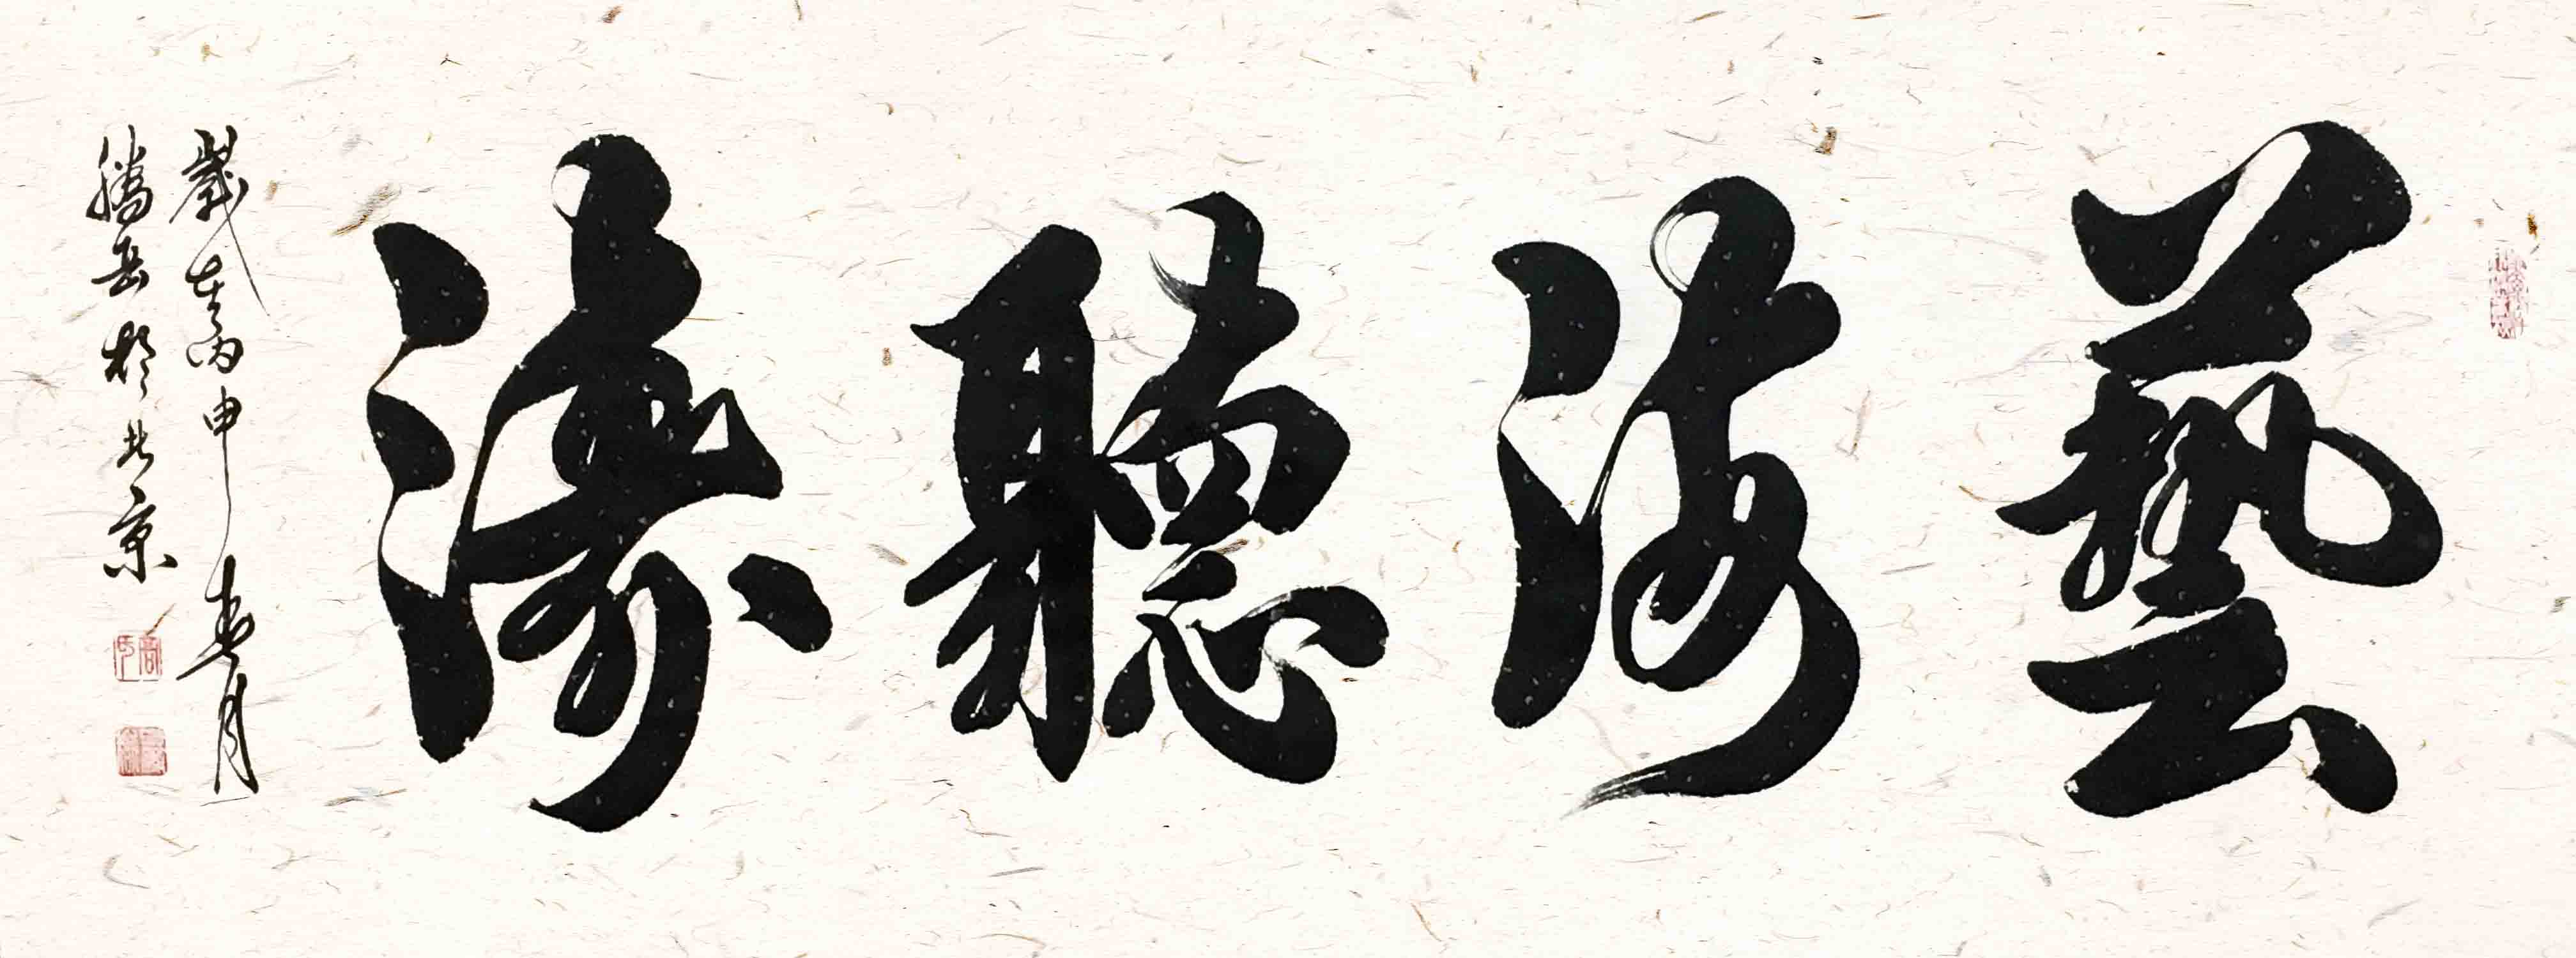 藝海聽濤
歲在丙申春月
騰岳於北京